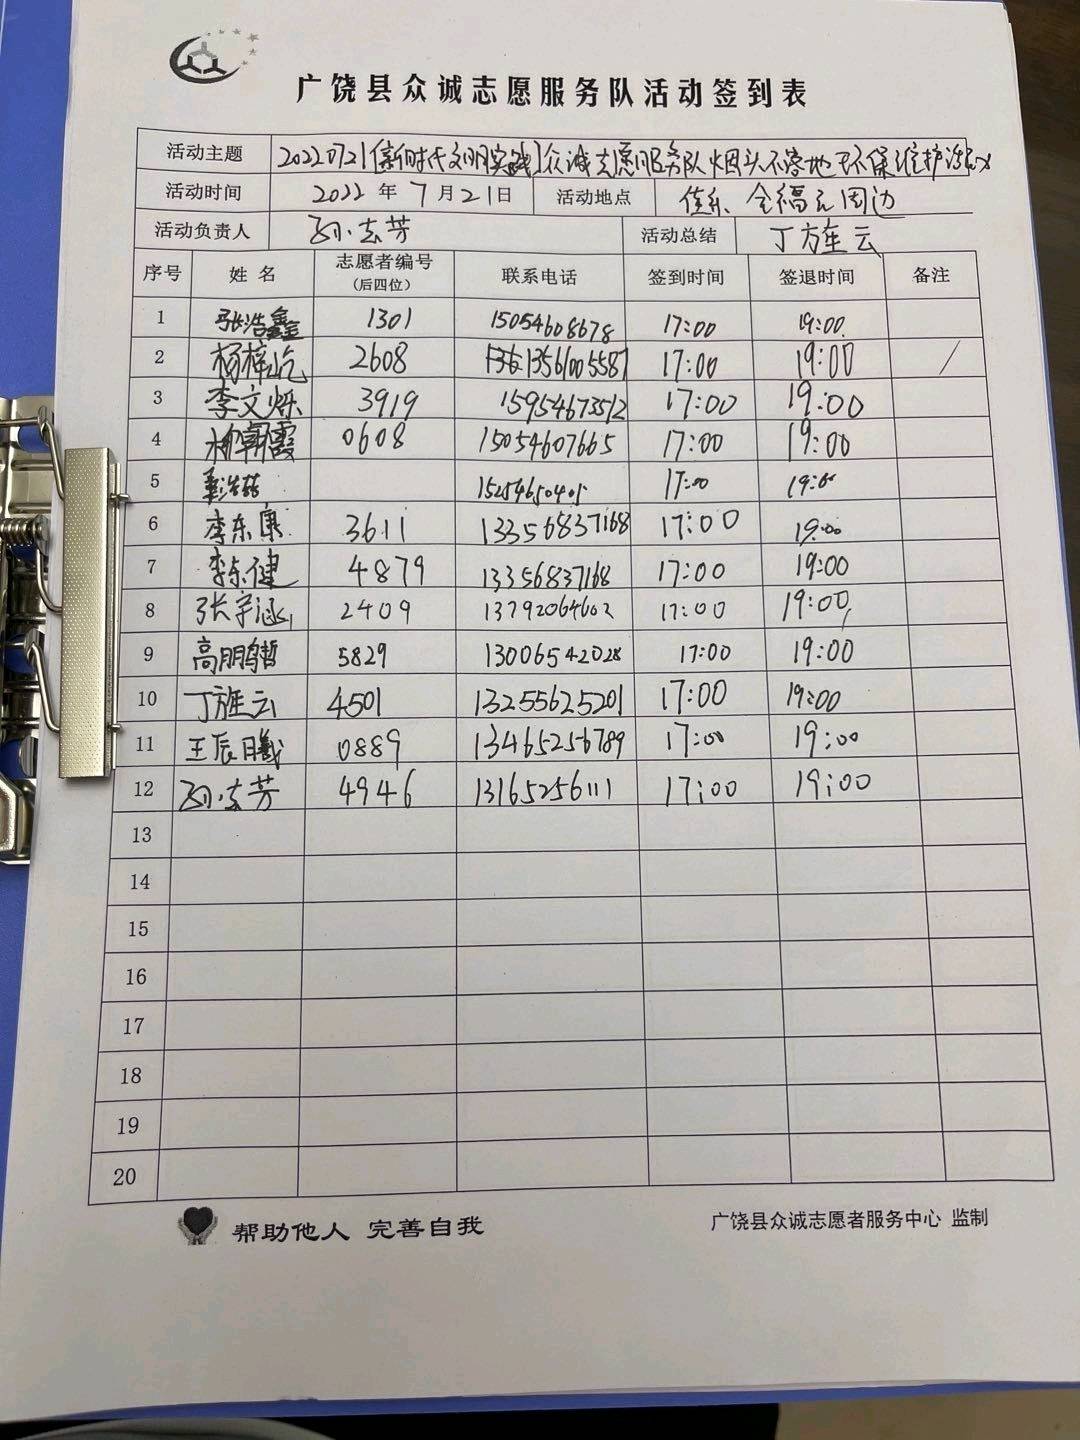 广饶县众诚志愿服务队活动签到表
活动主题 20220721【新时代文明实践】众诚志愿服务队烟头不落地 环保维护活动
活动时间 2022年7月21日 活动地点 佳乐、全福元周边
活动负责人 孙志芳 活动总结 丁旌云
序号 姓名 志愿者编号(后四位) 联系电话 签到时间 签退时间 备注
1 张浩鑫 1301 15054608678 17:00 19:00
2 杨梓屹 2608 13561005587 17:00 19:00 /
3 李文烁 3919 15954673512 17:00 19:00
4 0608 15054607665 17:00 19:00
5 15254650401 17:00 19:00
6 李东康 3611 13356837168 17:00 19:00
7 李东健 4879 13356837168 17:00 19:00
8 张宇涵 2409 13792064602 17:00 19:00
9 高鹏哲 5829 13006542028 17:00 19:00
10 丁旌云 4501 13255625201 17:00 19:00
11 王辰曦 0889 13465256789 17:00 19:00
12 孙志芳 4946 13165256111 17:00 19:00
13
14
15
16
17
18
19
20
帮助他人 完善自我 广饶县众诚志愿者服务中心 监制